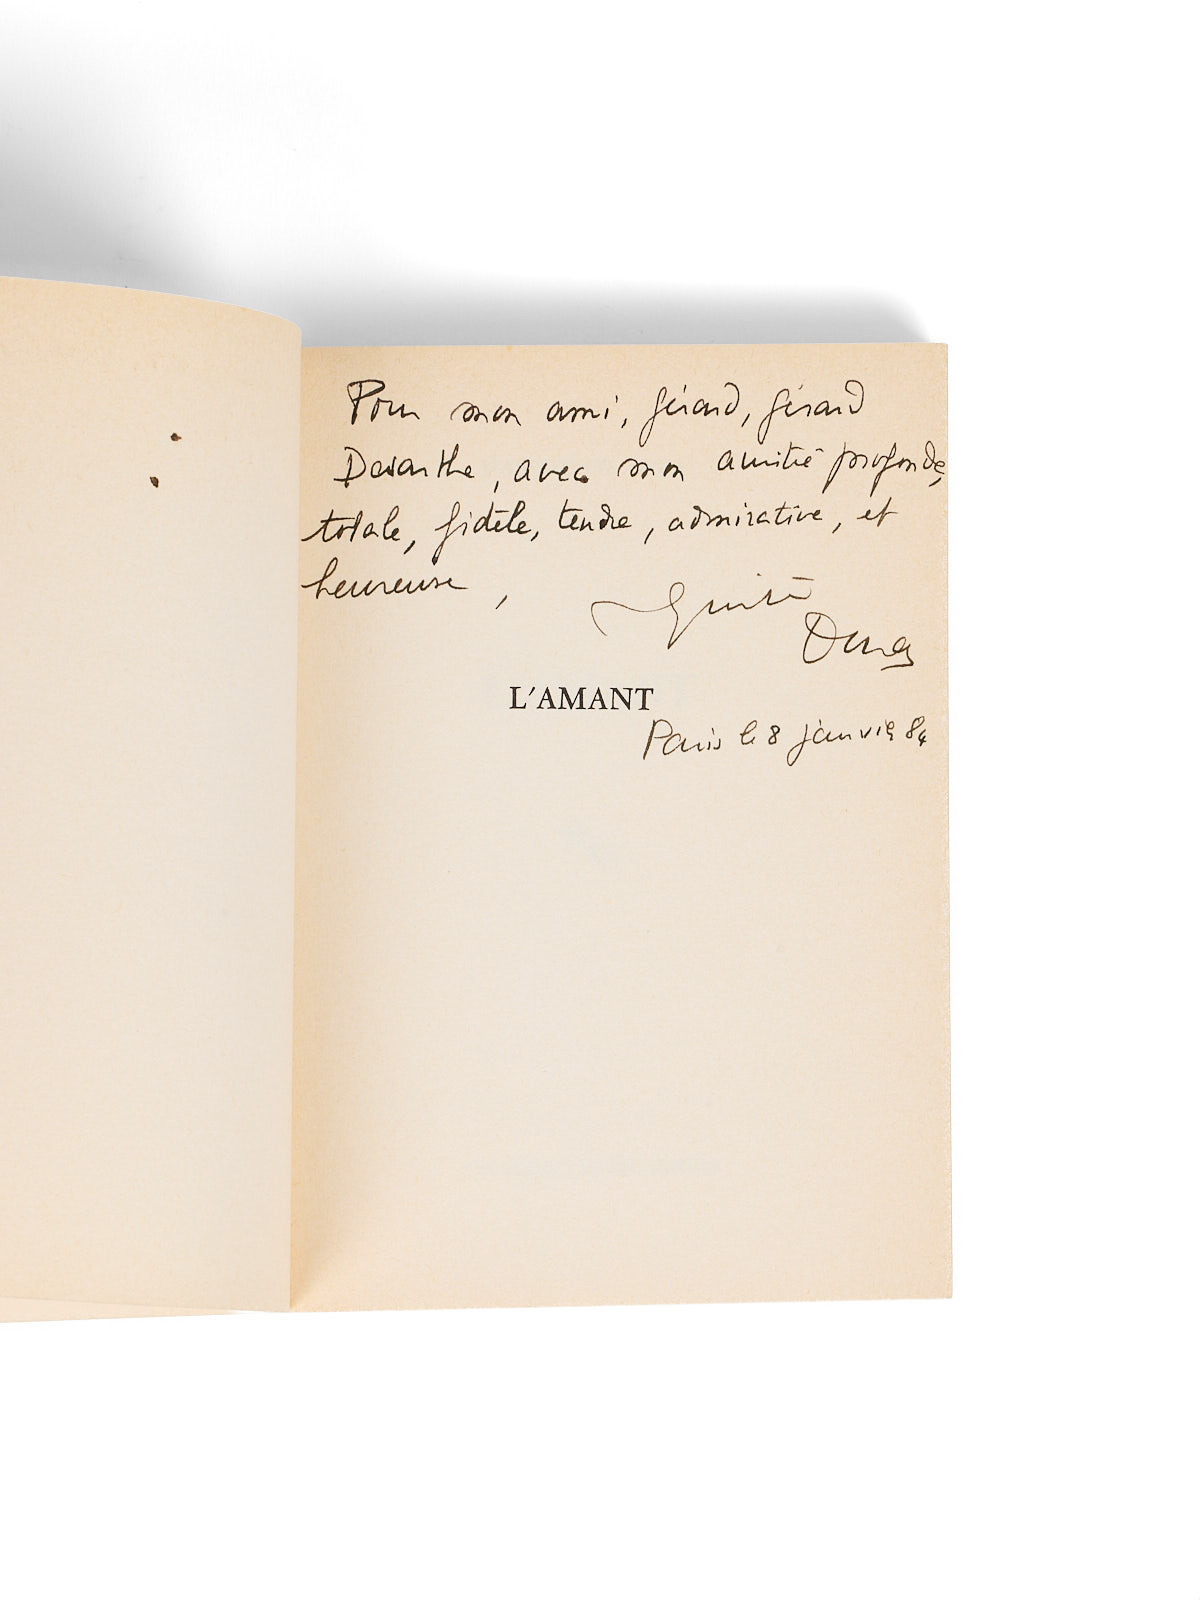 Pour mon ami, Gérard, Gérard
Desarthe, avec mon amitié profonde,
totale, fidèle, tendre, admirative, et
heureuse,
Duras
L'AMANT
Paris le 8 janvier 84